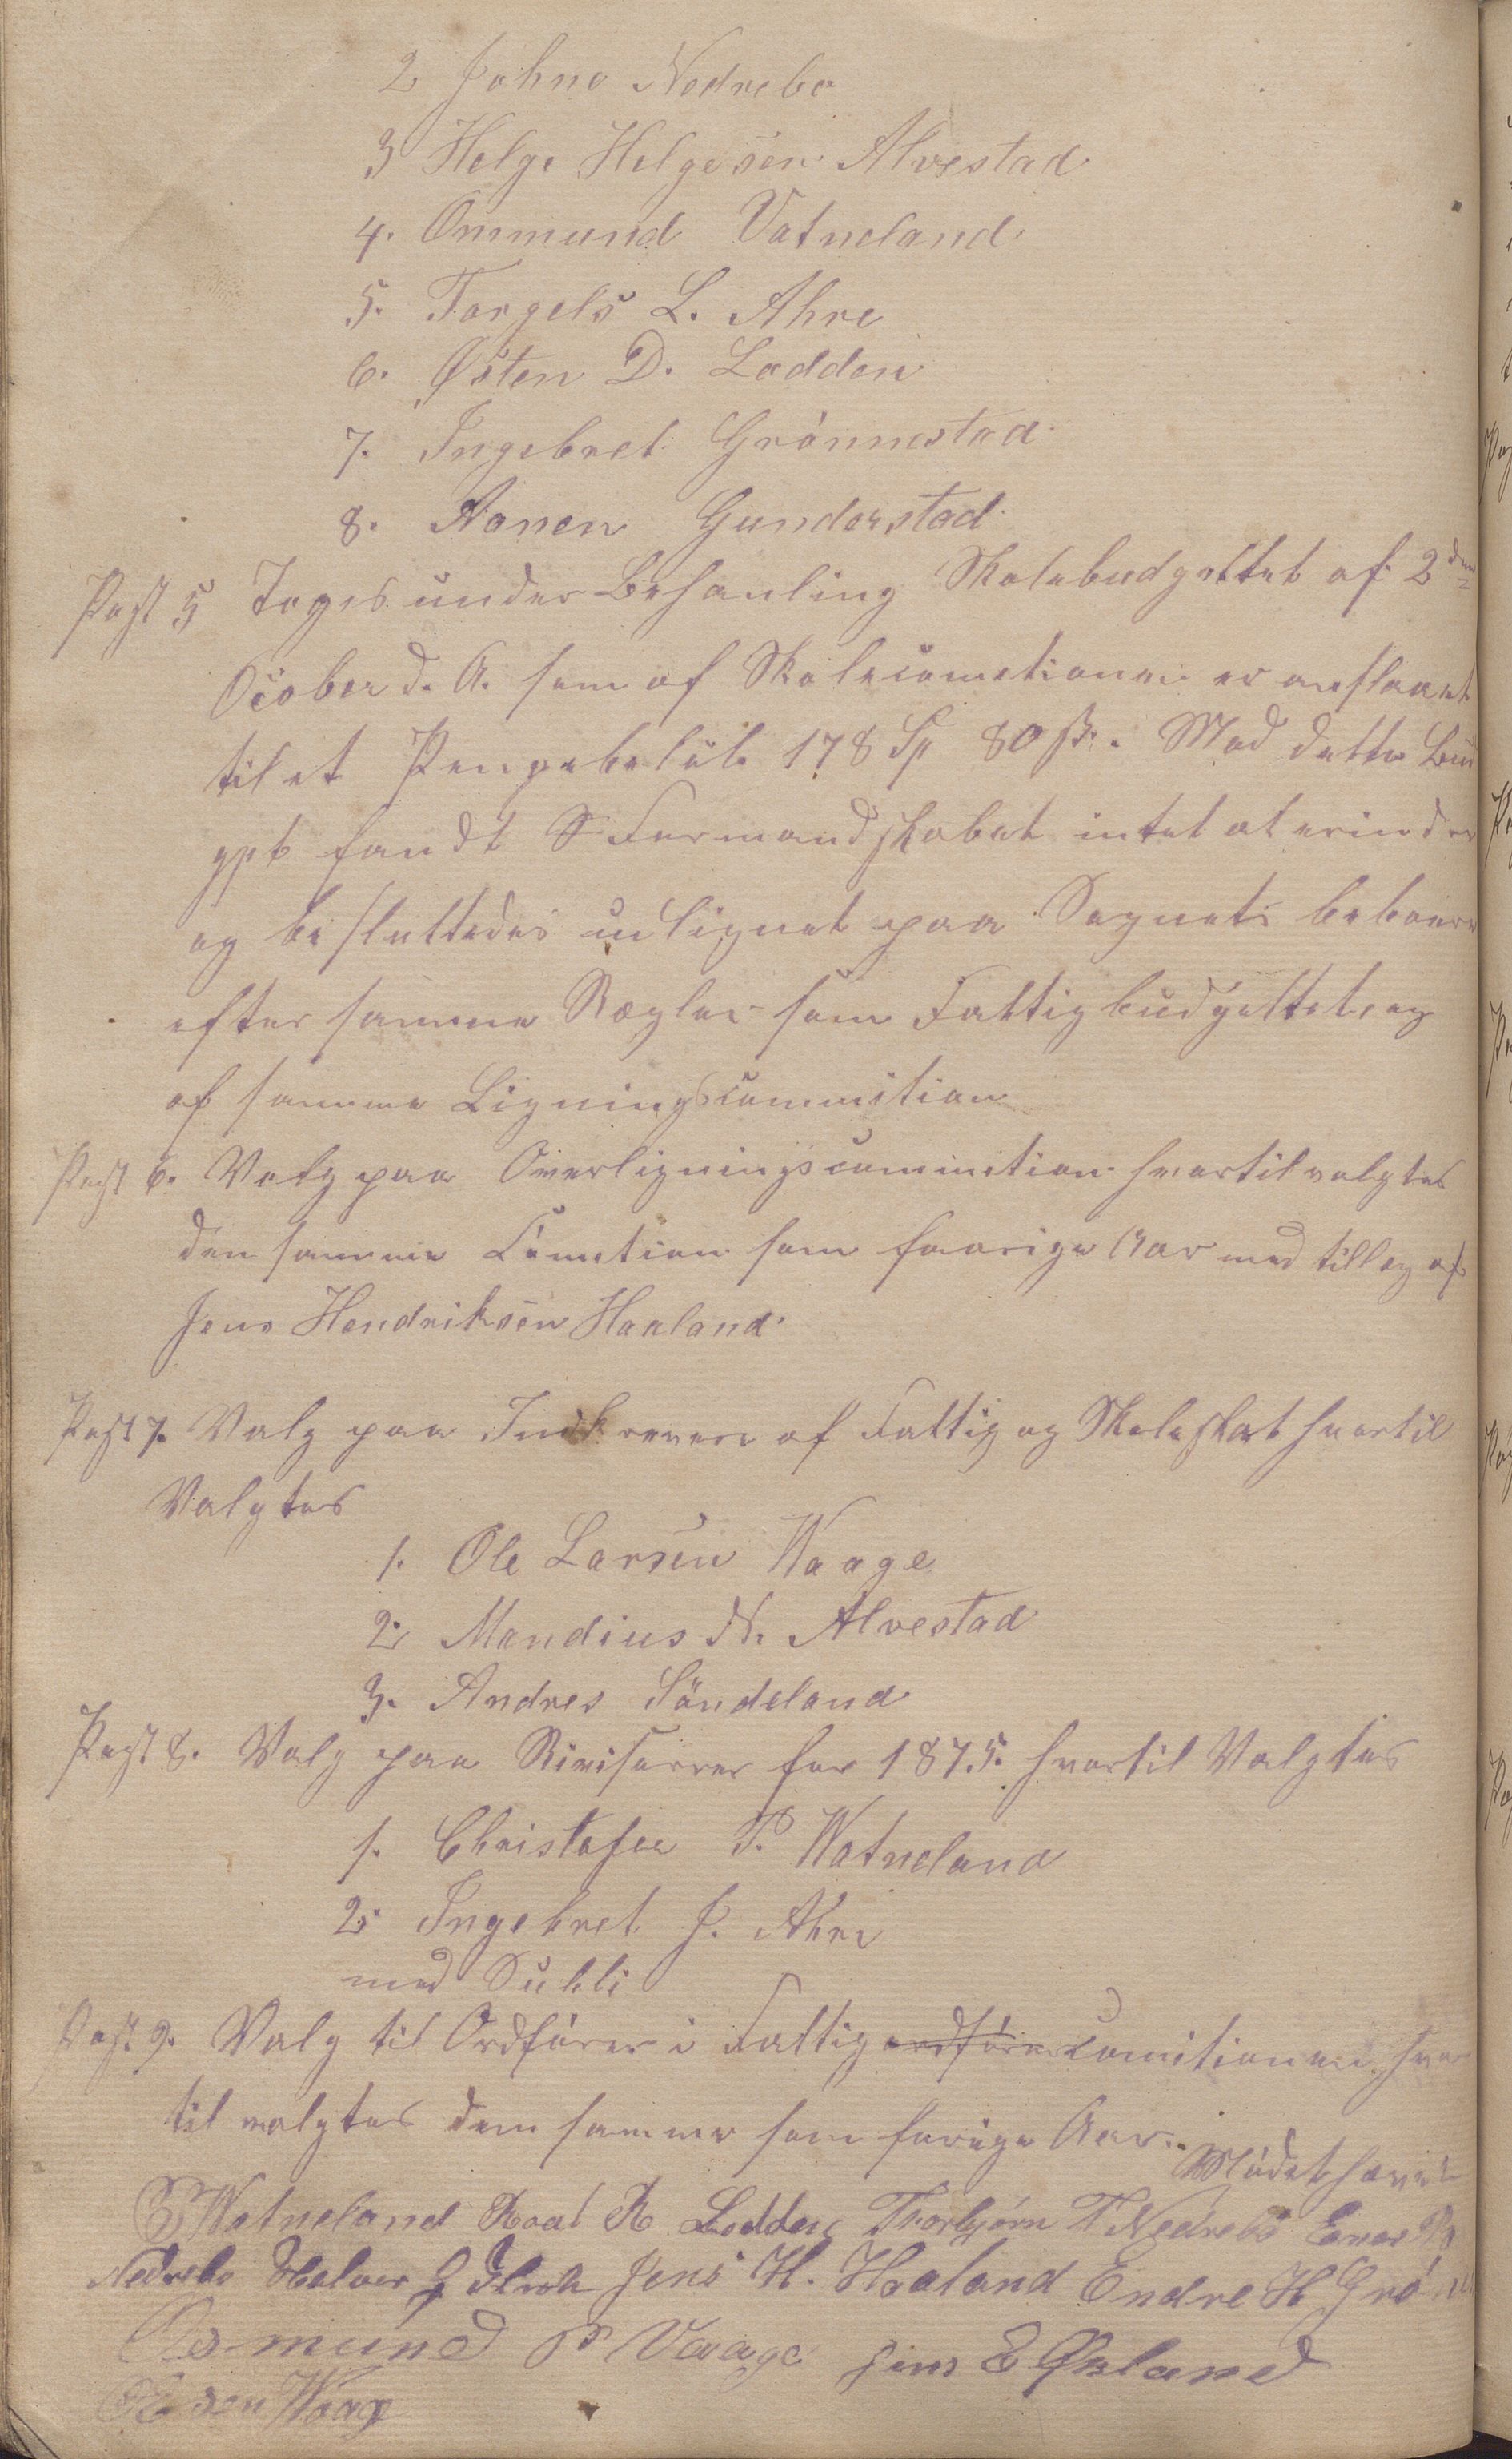 2 Johno Nedrebo
3 Helge Helgesen Alvestad
4. Ommund Vatneland
5. Torgels L. Ahre
6. Østen D. Lodden
7. Ingebret Grönnestad
8. Aanen Gunderstad
Post 5 Toges under Behanling Skolebudgettet af 2den
Ocober d. A. som af Skolecometionen er anslaaet
til et Pengebeløb 178 Sp 80 ß. Mod dette Bud
get fandt Formandskabet intet at erindre
og besluttedes udlignet paa Sognets beboere
efter samme Regler som Fattigbudgettet og
af samme Ligningscommition
Post 6. Valg paa Overligningscommition hvortil valgtes
den samme Comition som foorige Aar med tillæg af
Jens Hendriksen Haaland
Post 7. Valg paa Indkrevere af Fattig og Skoleskat hvortil
Valgtes
1. Ole Larsen Waage
2. Mandius N. Alvestad
3. Andres Söndeland
Post 8. Valg paa Revisorer for 1875. hvortil Valgtes
1. Christofer P. Watneland
2. Ingebret J. Ahre
med
Post 9. Valg til Ordförer i Fattig ordförer comitionen hvor
til valgtes den samme som forige Aar. Mödet hævet
Watneland Roal R Lodden Thorbjörn T Nedrebö Ener
Nedrebo Halvor Jens H. Haaland Endre H Grö
Osmund P Vaage Jens E Øksland
Waage